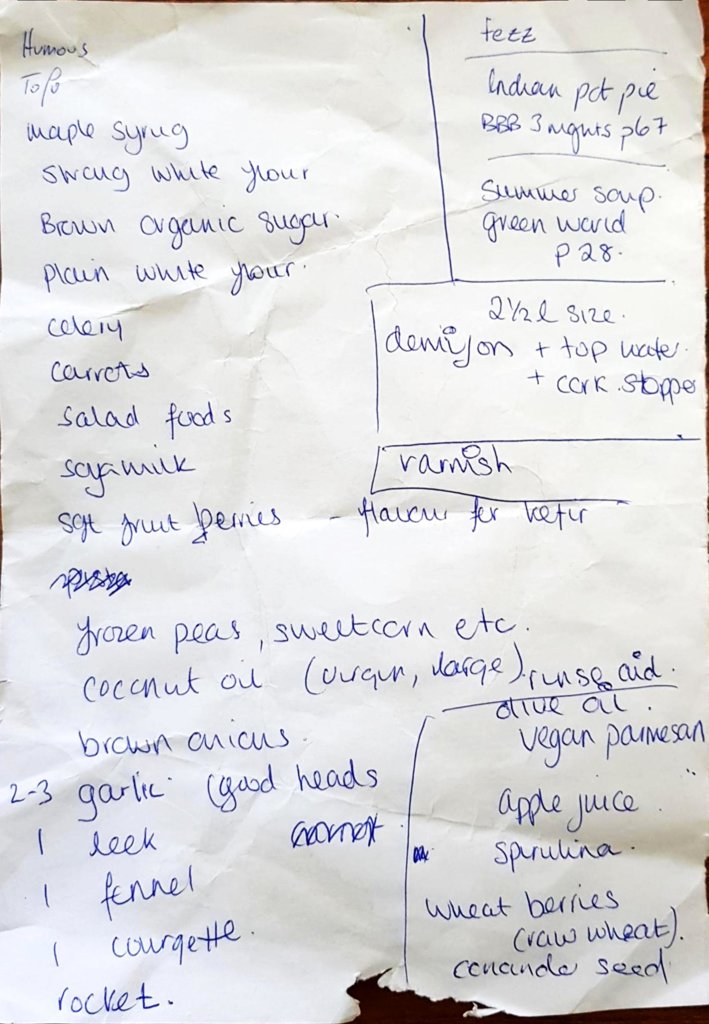 Humous
Tofu
maple syrup
strong white flour
Brown organic sugar.
plain white flour.
celery
carrots
salad foods
soyamilk
sqt fruit berries - flavour for kefir
frozen peas, sweetcorn etc.
coconut oil (virgin, large)
brown onions.
2-3 garlic (good heads
1 leek
1 fennel
1 courgette.
rocket.
fezz
Indian pot pie
BBB 3 mgnts p67
Summer soup.
green world
p 28.
2½ l size.
demijon + top water.
+ cork stopper
varnish
rinse aid.
olive oil.
vegan parmesan
apple juice
spirulina.
wheat berries
(raw wheat).
seed